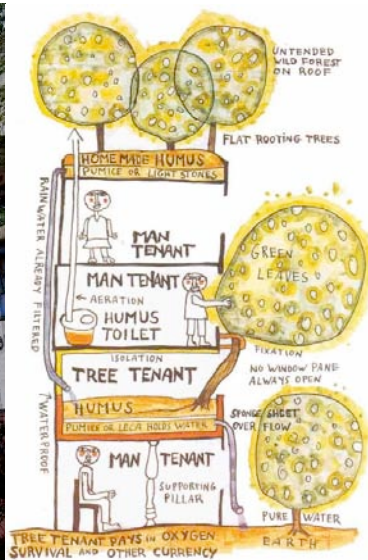 UNTENDED
WILD FOREST
ON ROOF
FLAT ROOTING TREES
HOMEMADE HUMUS
PUMICE OR LIGHT STONES
RAINWATER ALREADY FILTERED
MAN
TENANT
MAN TENANT
← AERATION
HUMUS
TOILET
GREEN
LEAVES
ISOLATION
FIXATION
TREE TENANT
NO WINDOW PANE
ALWAYS OPEN
HUMUS
PUMICE OR LECA HOLDS WATER
SPONGE SHEET
OVER FLOW
↑ WATERPROOF
MAN TENANT
SUPPORTING
PILLAR
PURE WATER
EARTH
TREE TENANT PAYS IN OXYGEN
SURVIVAL AND OTHER CURRENCY